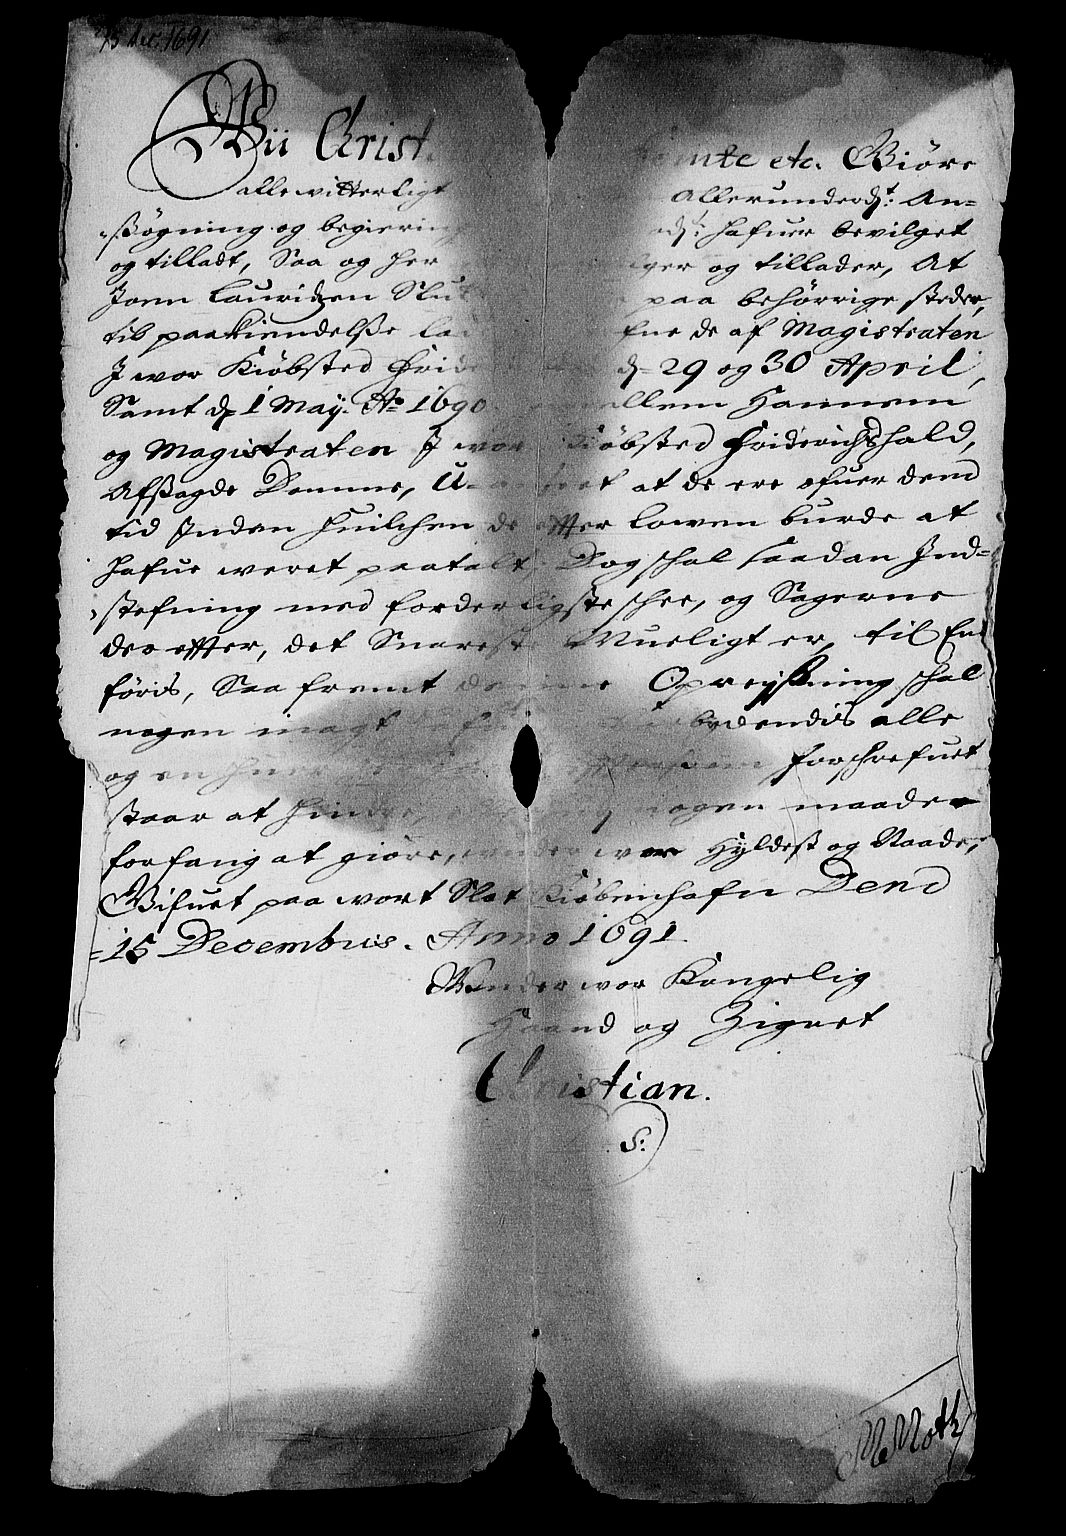 15 dec. 1691
Wii Christ femte etc. Giöre
alle witterligt Allerunderd.t An=
=ßögning og begiering d.t hafuer bevilget
og tilladt, Saa og her og tillader, At
Joen Lauridzen paa behörrige steder,
til paakiendelße lad de af Magistraten
J wor Kiöbsted Frid d. 29 og 30 April,
Samt d. 1 Maÿ. Ao 1690. mellem Hannem
og Magistraten J wor Kiöbsted Friderichshald,
Afsagde Domme, U-anseet at de ere ofuer dend
tid Jnden huilchen de effter Lowen burde at
hafue weret paatalt; Dog schal saadan Jnd=
=stefning med forderligste schee, og Sagerne
der effter, det Snareste Mueligt er, til End
föris, Saa fremt denne Opreÿsning schal
nogen magt forbydendis alle
og en huer forschrefuet
staar at hindre, nogen maade
forfang at giöre, under wor Hyldest og Naade,
Gifuet paa wort Slot Kiöbenhafn Dend
15 Decembris. Anno 1691
Wnder wor Kongelig
Haand og Zignet
Christian.
S:
M Moth